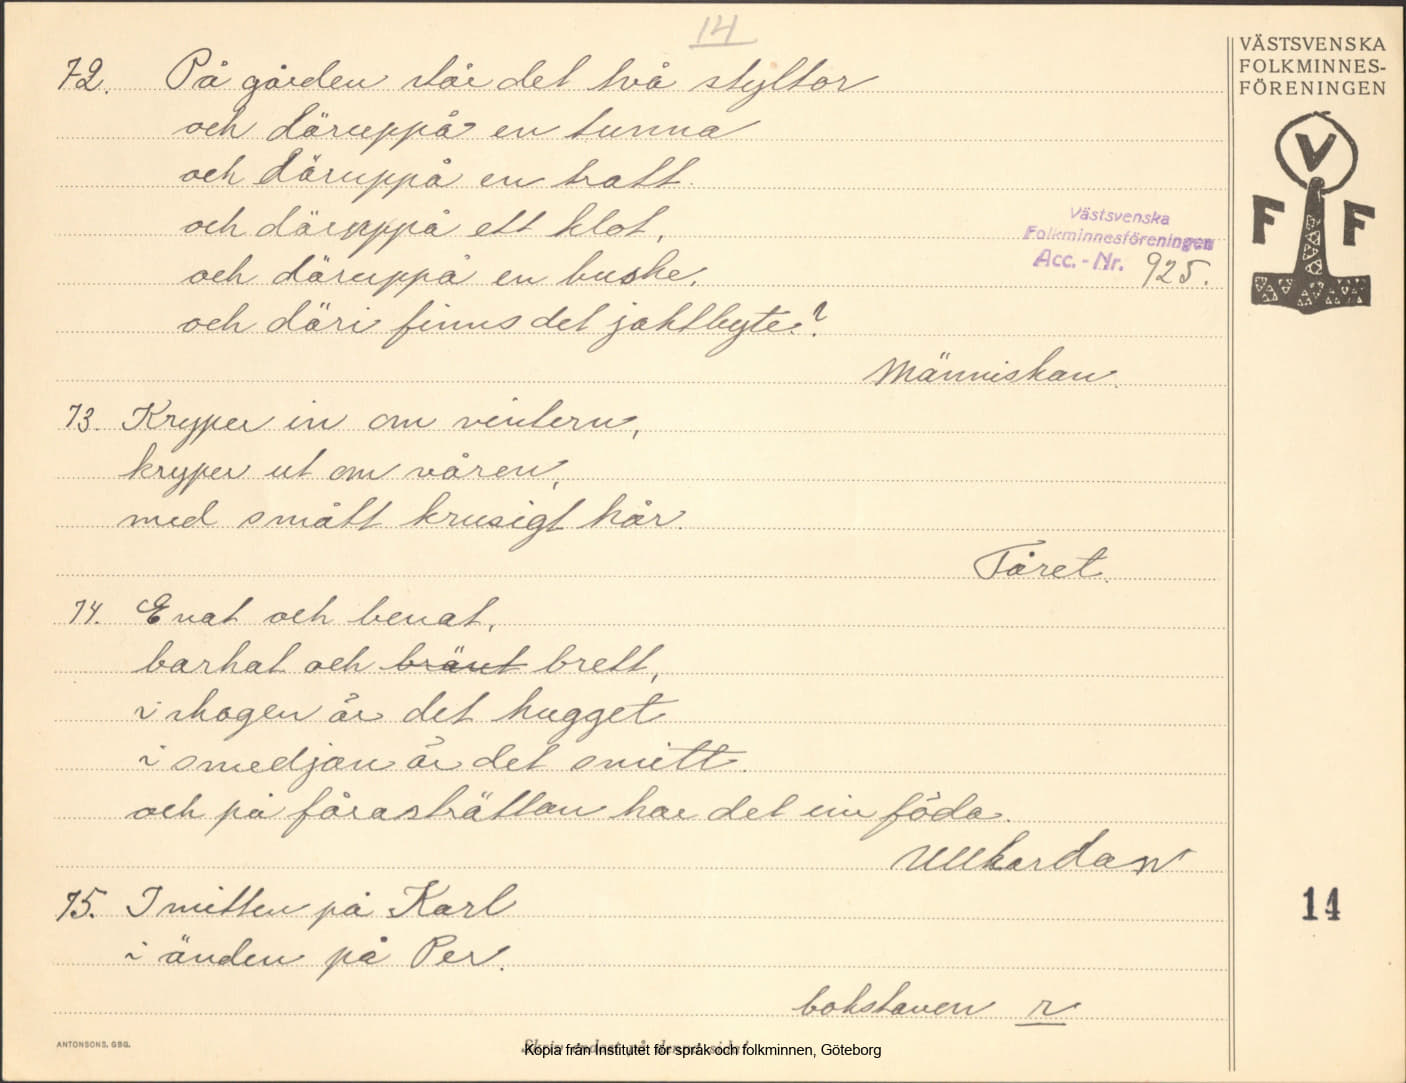 14
72. På gården står det två styltor
och däruppå en tunna
och däruppå en tratt.
och däruppå ett klot,
och däruppå en buske,
och däri finns det jaktbyte?
Människan.
73. Kryper in om vintern,
kryper ut om våren,
med smått krusigt hår.
Fåret.
74. Enat och benat,
barkat och bränt brett,
i skogen är det hugget
i smedjan är det smitt.
och på fåraskrättan har det sin föda.
Ullkardan
75. I mitten på Karl
i änden på Per.
bokstaven r
VÄSTSVENSKA
FOLKMINNES-
FÖRENINGEN
V
F F
Västsvenska
Folkminnesföreningen
Acc.-Nr. 925.
14
ANTONSONS, GBG.
Skriv endast på denna sida!
Kopia från Institutet för språk och folkminnen, Göteborg